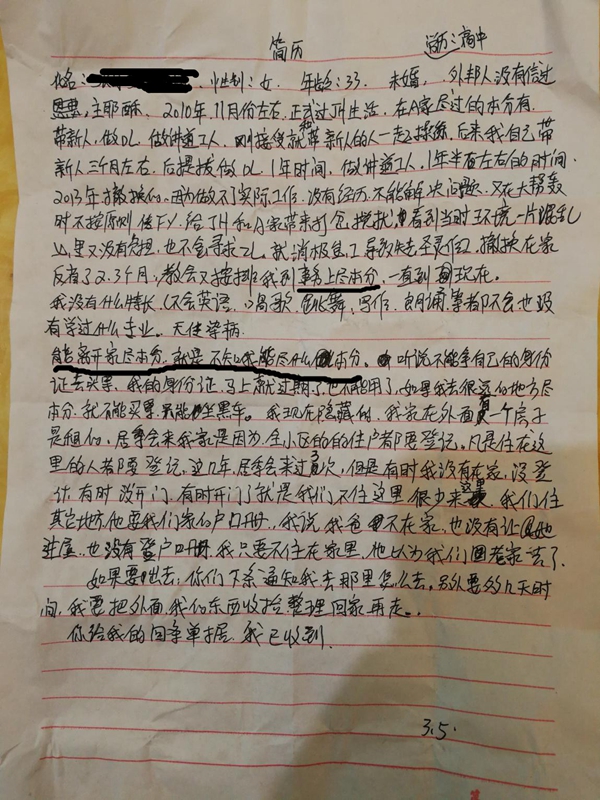 简历 学历：高中
姓名： 性别：女 年龄：33 未婚，外邦人没有信过
主耶稣。2010年11月份左右，正式过JH生活，在A家尽过的本分有
带新人，做DL，做讲道工人，刚接受就和带新人的人一起操练，后来我自己带
新人三个月左右，后提拔做DL，1年时间，做讲道工人，1年半左右的时间，
2013年撤换的，因为做不了实际工作，没有经历，不能解决问题，又在大帮轰
时不按原则传FY，给JH和A家带来搅扰，看到当时环境一片混乱
心里又没有负担，也不会寻求ZL，就消极怠工导致失去圣灵作工，撤换在家
反省了2.3个月，教会又安排我到事务上尽本分，一直到现在。
我没有什么特长，（不会英语，唱歌，跳舞，写作，朗诵等都不会也没
有学过什么专业。无传染病
能离开家尽本分，就是不知我能尽什么本分，听说不能拿自己的身份
证去买票，我的身份证，马上就过期了，也不能用了，如果我去很远的地方尽
本分，就不能买票只能坐黑车。我现在隐藏的，我家在外面有一个房子
是租的，居委会来我家是因为，全小区的的住户都要登记，凡是住在这
里的人都要登记，这几年，居委会来过3次，但是有时我没有在家，没登
记有时没开门，有时开门了就是我们不住这里很少来这里，我们住
其它地方他要我们家的户口册，我说，我爸不在家，也没有让他
进屋，也没有登户口册，我只要不住在家里，他以为我们回老家去了，
如果要出去，你们下条通知我去那里怎么去，另外要约几天时
间，我要把外面我的东西收拾，整理回家再走。
你给我的回条单据，我已收到
3.5.